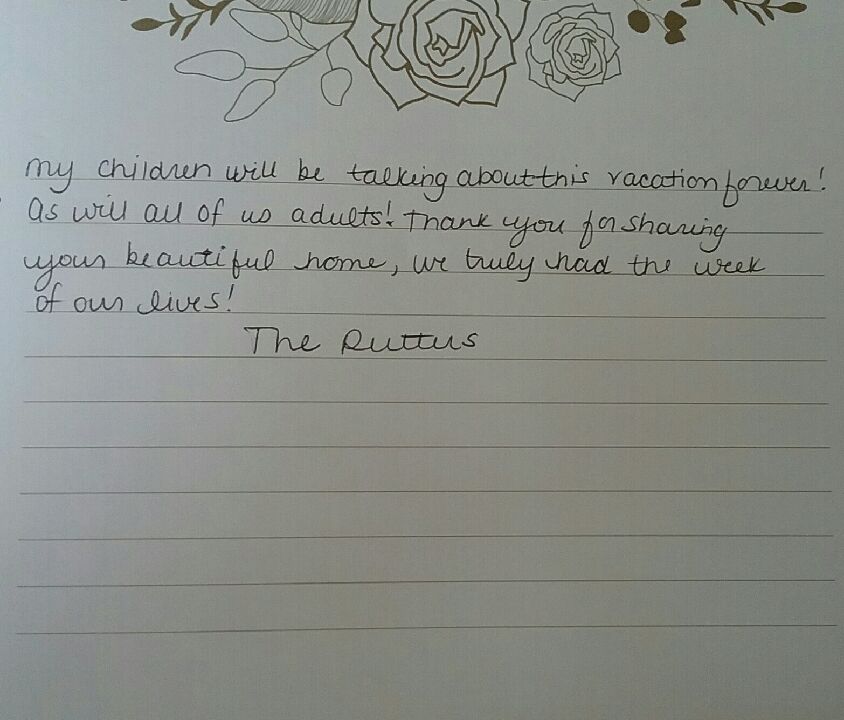 my children will be talking about this vacation forever!
As will all of us adults! Thank you for sharing
your beautiful home, we truly had the week
of our lives!
The Ruttus